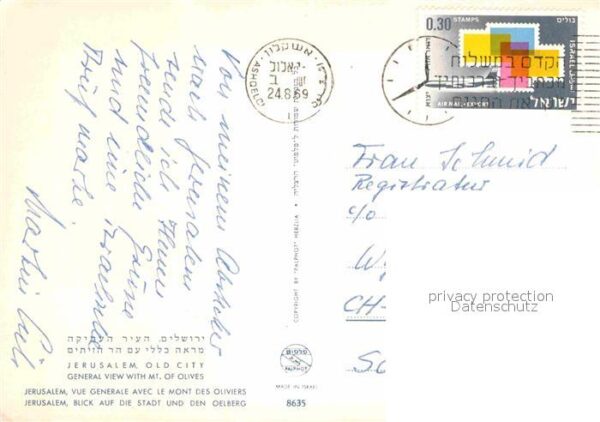 Von meinem Abstecher
nach Jerusalem
send ich Ihnen
freundliche Grüsse
und eine Israelische
Briefmarke.
Martin
ירושלים, העיר העתיקה
מראה כללי עם הר הזיתים
JERUSALEM, OLD CITY
GENERAL VIEW WITH MT. OF OLIVES
JERUSALEM, VUE GENERALE AVEC LE MONT DES OLIVIERS
JERUSALEM, BLICK AUF DIE STADT UND DEN OELBERG
COPYRIGHT BY "PALPHOT" HERZLIA
פלפוט
PALPHOT
MADE IN ISRAEL
8635
אשקלון
ASHQELON
24.8.69
0.30
STAMPS
בולים
ISRAEL
ישראל
AIR MAIL-EXPORT
הקדם במשלוח
Frau Schmid
Registratur
c/o
CH-
privacy protection
Datenschutz